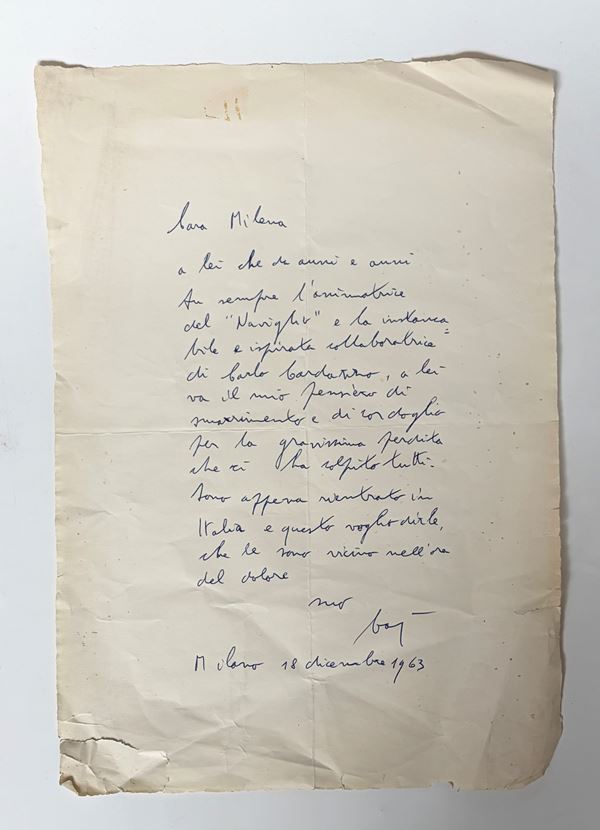 Cara Milena
a lei che da anni e anni
fu sempre l'animatrice
del "Naviglio" e la instanca=
bile e ispirata collaboratrice
di Carlo Cardazzo, a lei
va il mio pensiero di
smarrimento e di cordoglio
per la gravissima perdita
che ci ha colpito tutti.
Sono appena rientrato in
Italia e questo voglio dirle,
che le sono vicino nell'ora
del dolore
suo
baj
Milano 18 dicembre 1963